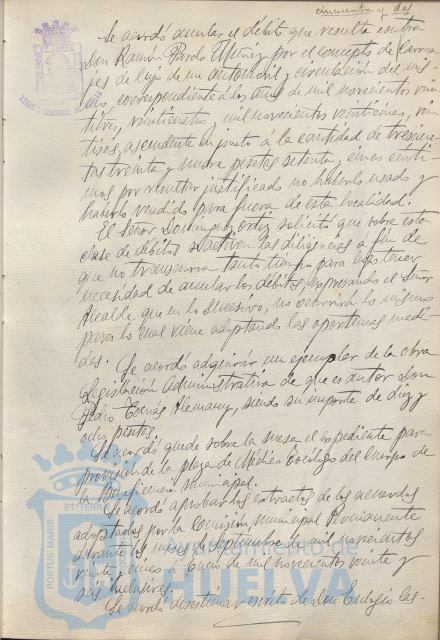 cincuenta y dos
Se acordó anular el débito que resulta contra
Don Ramón Pardo Muñiz por el concepto de Carrua-
jes de lujo de un automóvil y circulación del mis-
mo, correspondiente á los años de mil novecientos vein-
titres, veinticuatro, mil novecientos veinticinco, vein-
tiseis, ascendente en junto á la cantidad de trescien-
tas treinta y nueve pesetas setenta y cinco cénti-
mos por resultar justificado no haberlo usado y
haberlo vendido para fuera de esta localidad.
El Señor Domínguez Ortiz solicitó que sobre esta
clase de débitos se activen las diligencias á fin de
que no transcurra tanto tiempo para no tener
necesidad de anular los débitos, expresando el Señor
Alcalde que en lo sucesivo, no ocurrirá lo mismo
para lo cual viene adoptando las oportunas medi-
das.
Se acordó adquirir un ejemplar de la obra
Legislación Administrativa de que es autor Don
Pedro Tomás Alemany, siendo su importe de diez y
ocho pesetas.
Se acordó quede sobre la mesa el expediente para
provisión de la plaza de Médico del Cuerpo de
la Beneficencia Municipal.
Se acordó aprobar los extractos de los acuerdos
adoptados por la Comisión Municipal Permanente
durante los meses de Septiembre de mil novecientos
veinte y cinco á Enero de mil novecientos veinte y
seis inclusives.
Se acordó desestimar escrito de Don Eulogio Cas-
Ayuntamiento de
HUELVA
PORTUS MARIS
ET TERRAE